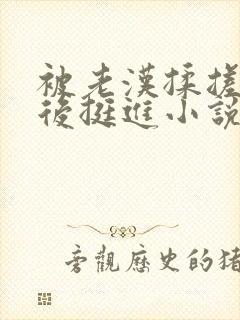 被老漢揉搓
後挺進小說
旁觀歷史的猪